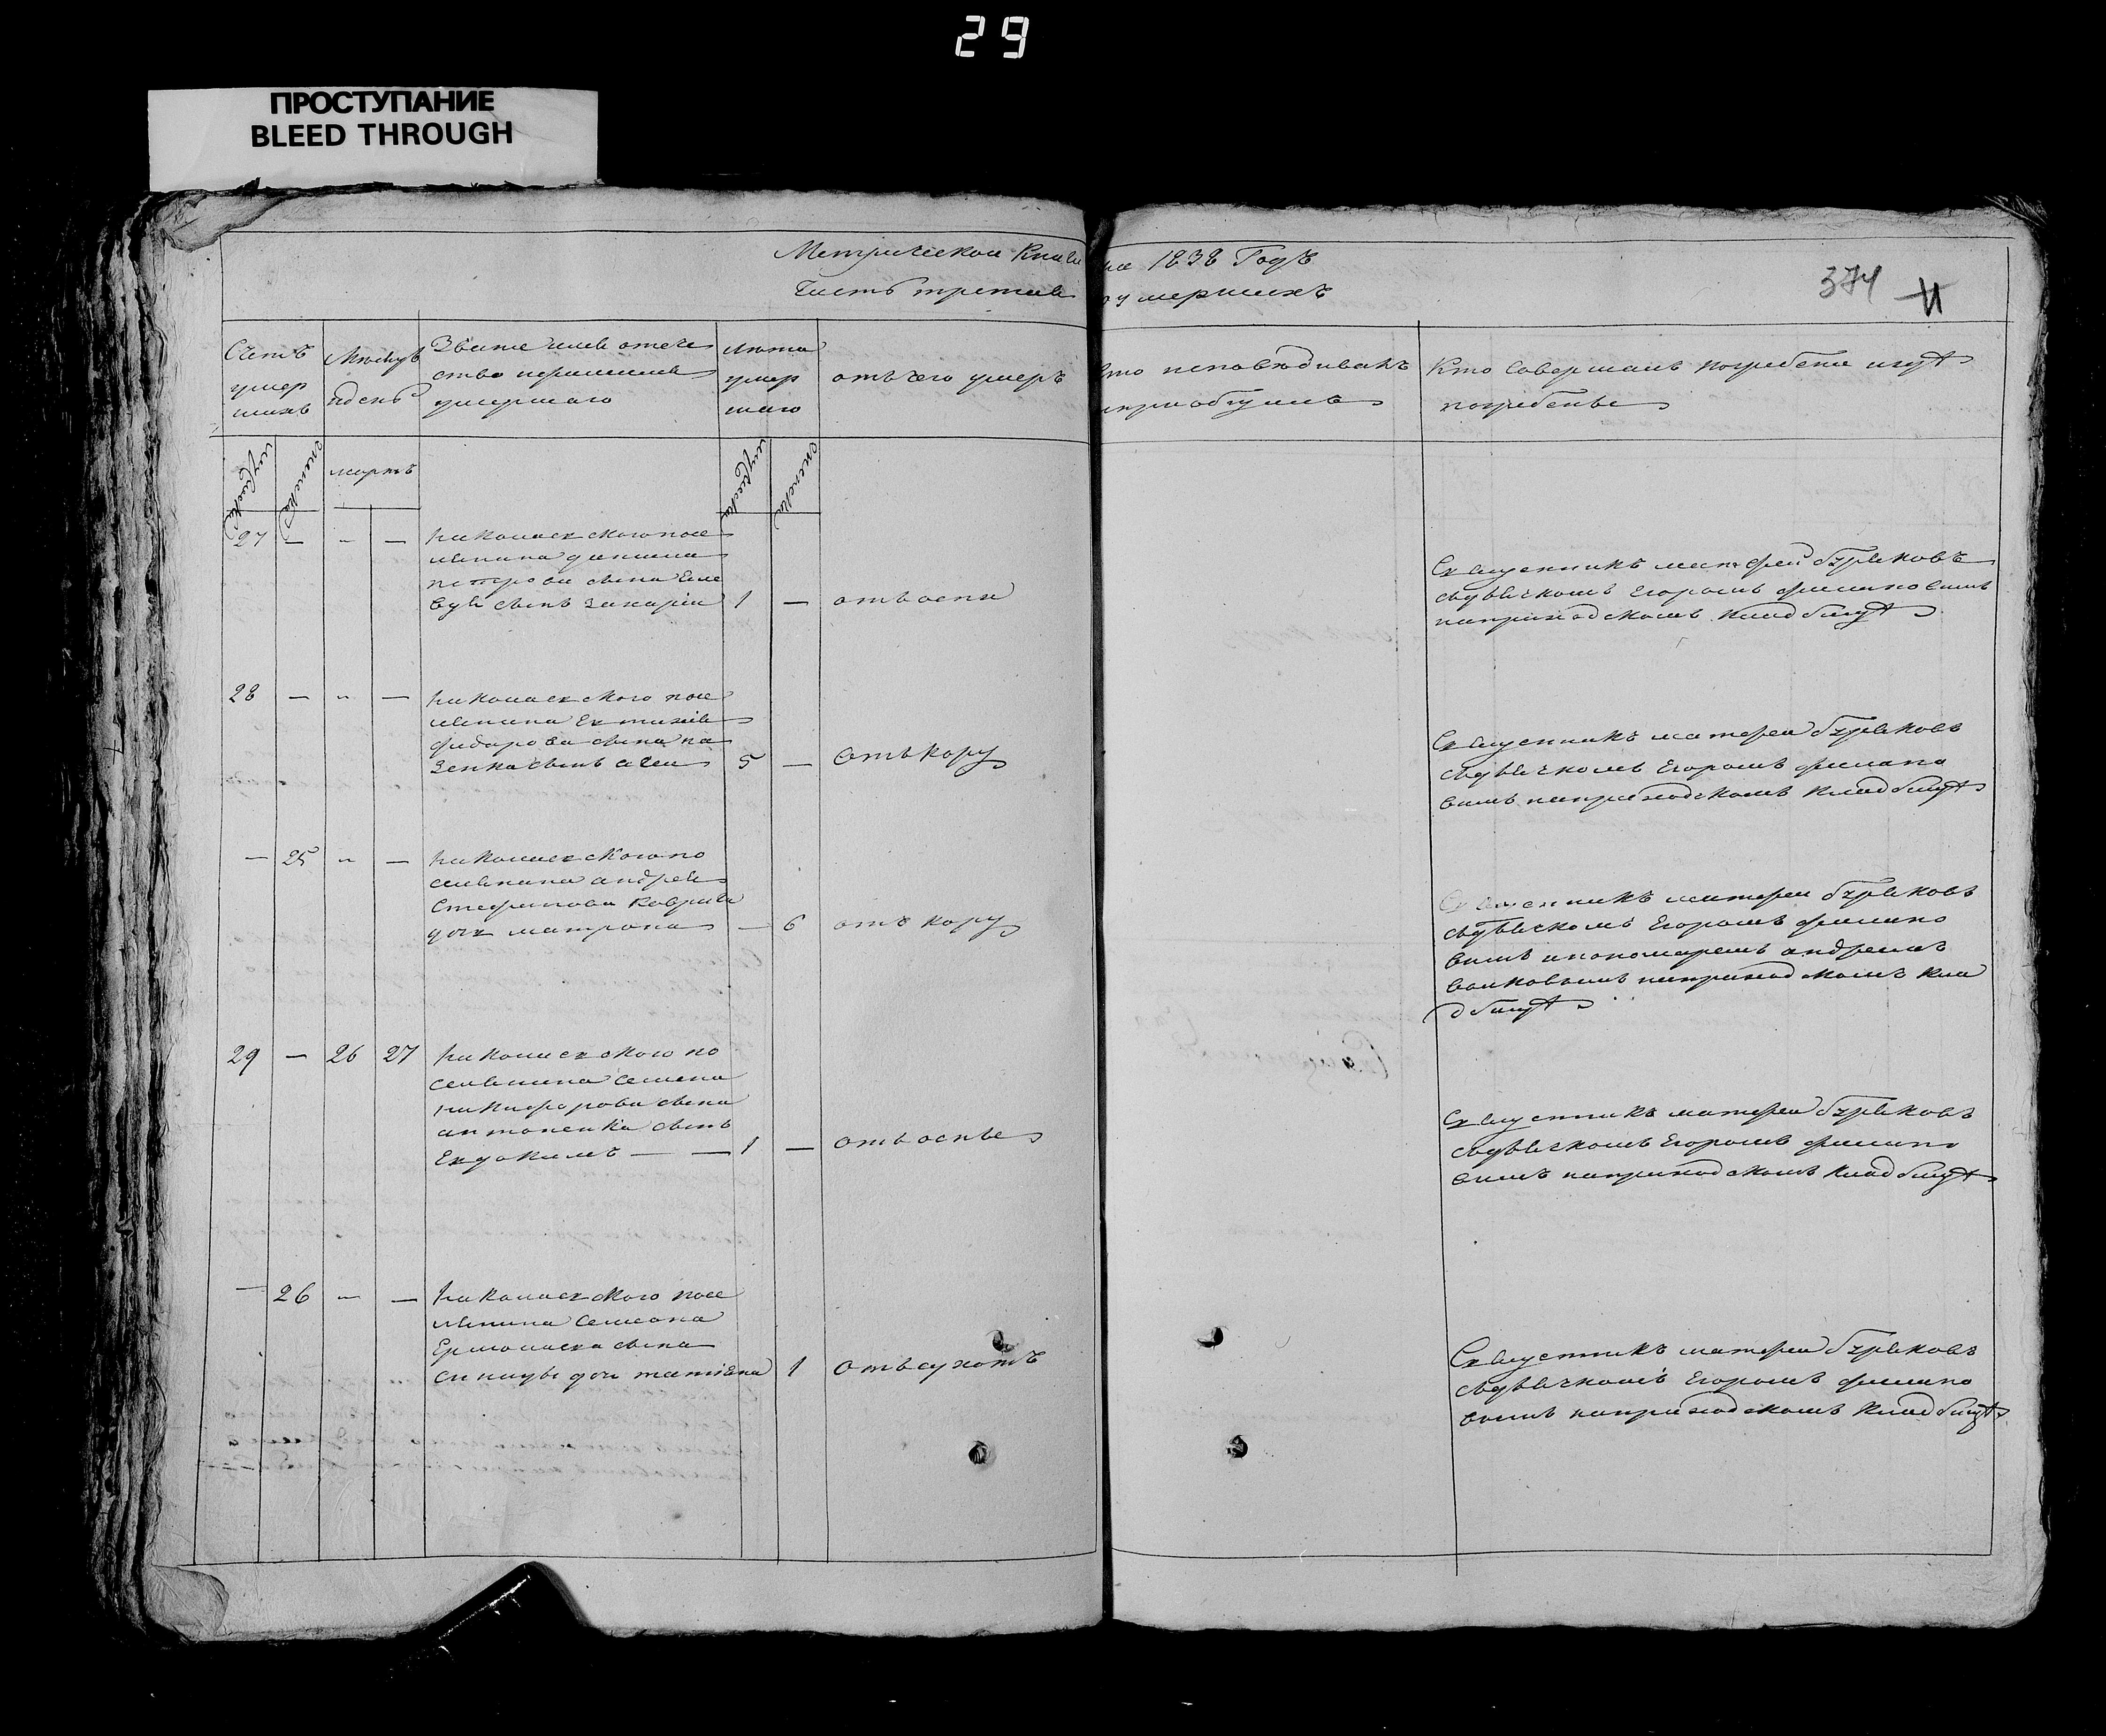 29
ПРОСТУПАНИЕ
BLEED THROUGH
Метрической Книги на 1838 Годъ
Часть третия о умершихъ
374
Счетъ умер шихъ
Мѣсяцъ и день
Званіе имя отече ство и прозвиние умершаго
Лѣта умер шаго
отъ чего умеръ
Кто исповѣдивалъ и приобщилъ
Кто Совершалъ погребение и гдѣ погребены
мужеска
женска
мартъ
мужеска
женска
27 — — —
николаевского посе
лянина данила
петрова сына
сынъ захарiи 1 — отъ оспи
Священникъ матфей
съ дьячкомъ Егоромъ филиповимъ
на приходскомъ кладбищѣ
28 — — —
николаевского посе
лянина Евтихія
федорова сына на
зенка сынъ 5 — отъ кору
Священникъ матфеи
съ дьячкомъ Егоромъ филипо
вимъ на приходскомъ кладбищѣ
— 25 — —
николаевского по
селянина андрея
Стефанова
дочь матрона — 6 отъ кору
Священникъ матфеи
съ дьячкомъ Егоромъ филипо
вимъ и пономаремъ андреемъ
волковымъ на приходскомъ кла
дбищѣ
29 — 26 27
николаевского по
селянина Семена
никифорова сина
антоненка синъ
Евдокимъ — — 1 — отъ оспы
Священникъ матфеи
съ дьячкомъ Егоромъ филипо
вимъ на приходскомъ кладбищѣ
— 26 — —
николаевского посе
лянина Семиона
Ермолаева сына
синицы дочь татіяна 1 отъ сухотъ
Священникъ матфеи
съ дьячкомъ Егоромъ филипо
вимъ на приходскомъ кладбищѣ